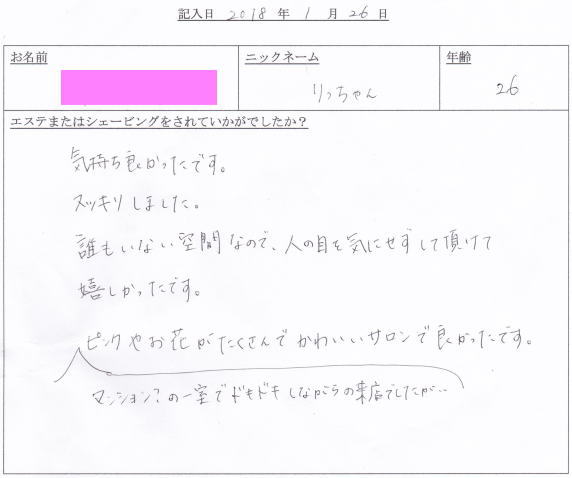 記入日 2018 年 1 月 26 日
お名前 ニックネーム 年齢
りっちゃん 26
エステまたはシェービングをされていかがでしたか？
気持ち良かったです。
スッキリしました。
誰もいない空間なので、人の目を気にせずして頂けて
嬉しかったです。
ピンクやお花がたくさんでかわいいサロンで良かったです。
マンション？の一室でドキドキしながらの来店でしたが…